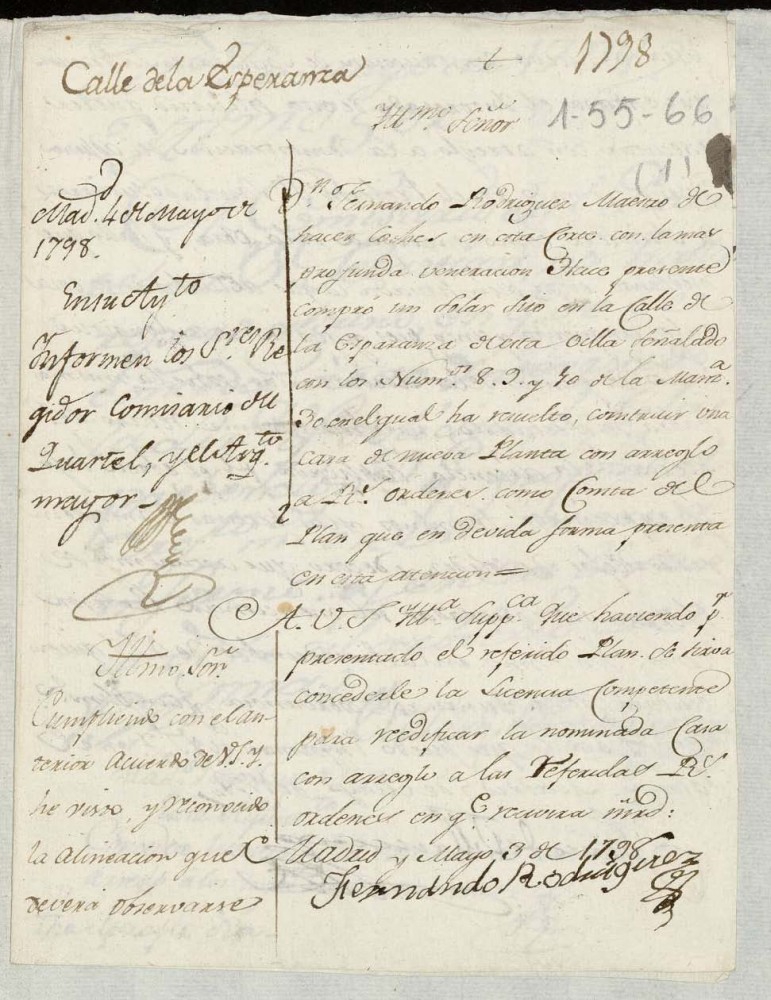 Calle de la Esperanza
1798
Yllmo Señor
1-55-66
(1)
Madd. 4 de Mayo de
1798.
En su Aytto
Ynformen los Sres Re
gidor Comisario del
Quartel, y el Arqto
mayor
Yllmo. Sor.
Cumpliendo con el an-
terior Acuerdo de V.S.Y.
he visto, y reconocido
la alineacion que
deverá observarse
Dn Fernando Rodriguez Maestro de
hacer Coches en esta Corte con la mas
profunda veneracion Hace presente
compró un solar sito en la Calle de
la Esperanza de esta Villa señalado
con los Numos 8. 9. y 10 de la Manza
30 en el qual ha resuelto, construir una
casa de nueva Planta con arreglo
a Rs. ordenes como Consta del
Plan que en devida forma presenta
en esta atencion =
A V. S. Ylla Suppca Que haviendo pr
presentado el referido Plan se sirva
concederle la Licencia Competente
para reedificar la nominada Casa
con arreglo a las Referidas Rs.
ordenes en qe recivira mrd:
Madrid y Mayo 3 de 1798
Fernando Rodriguez